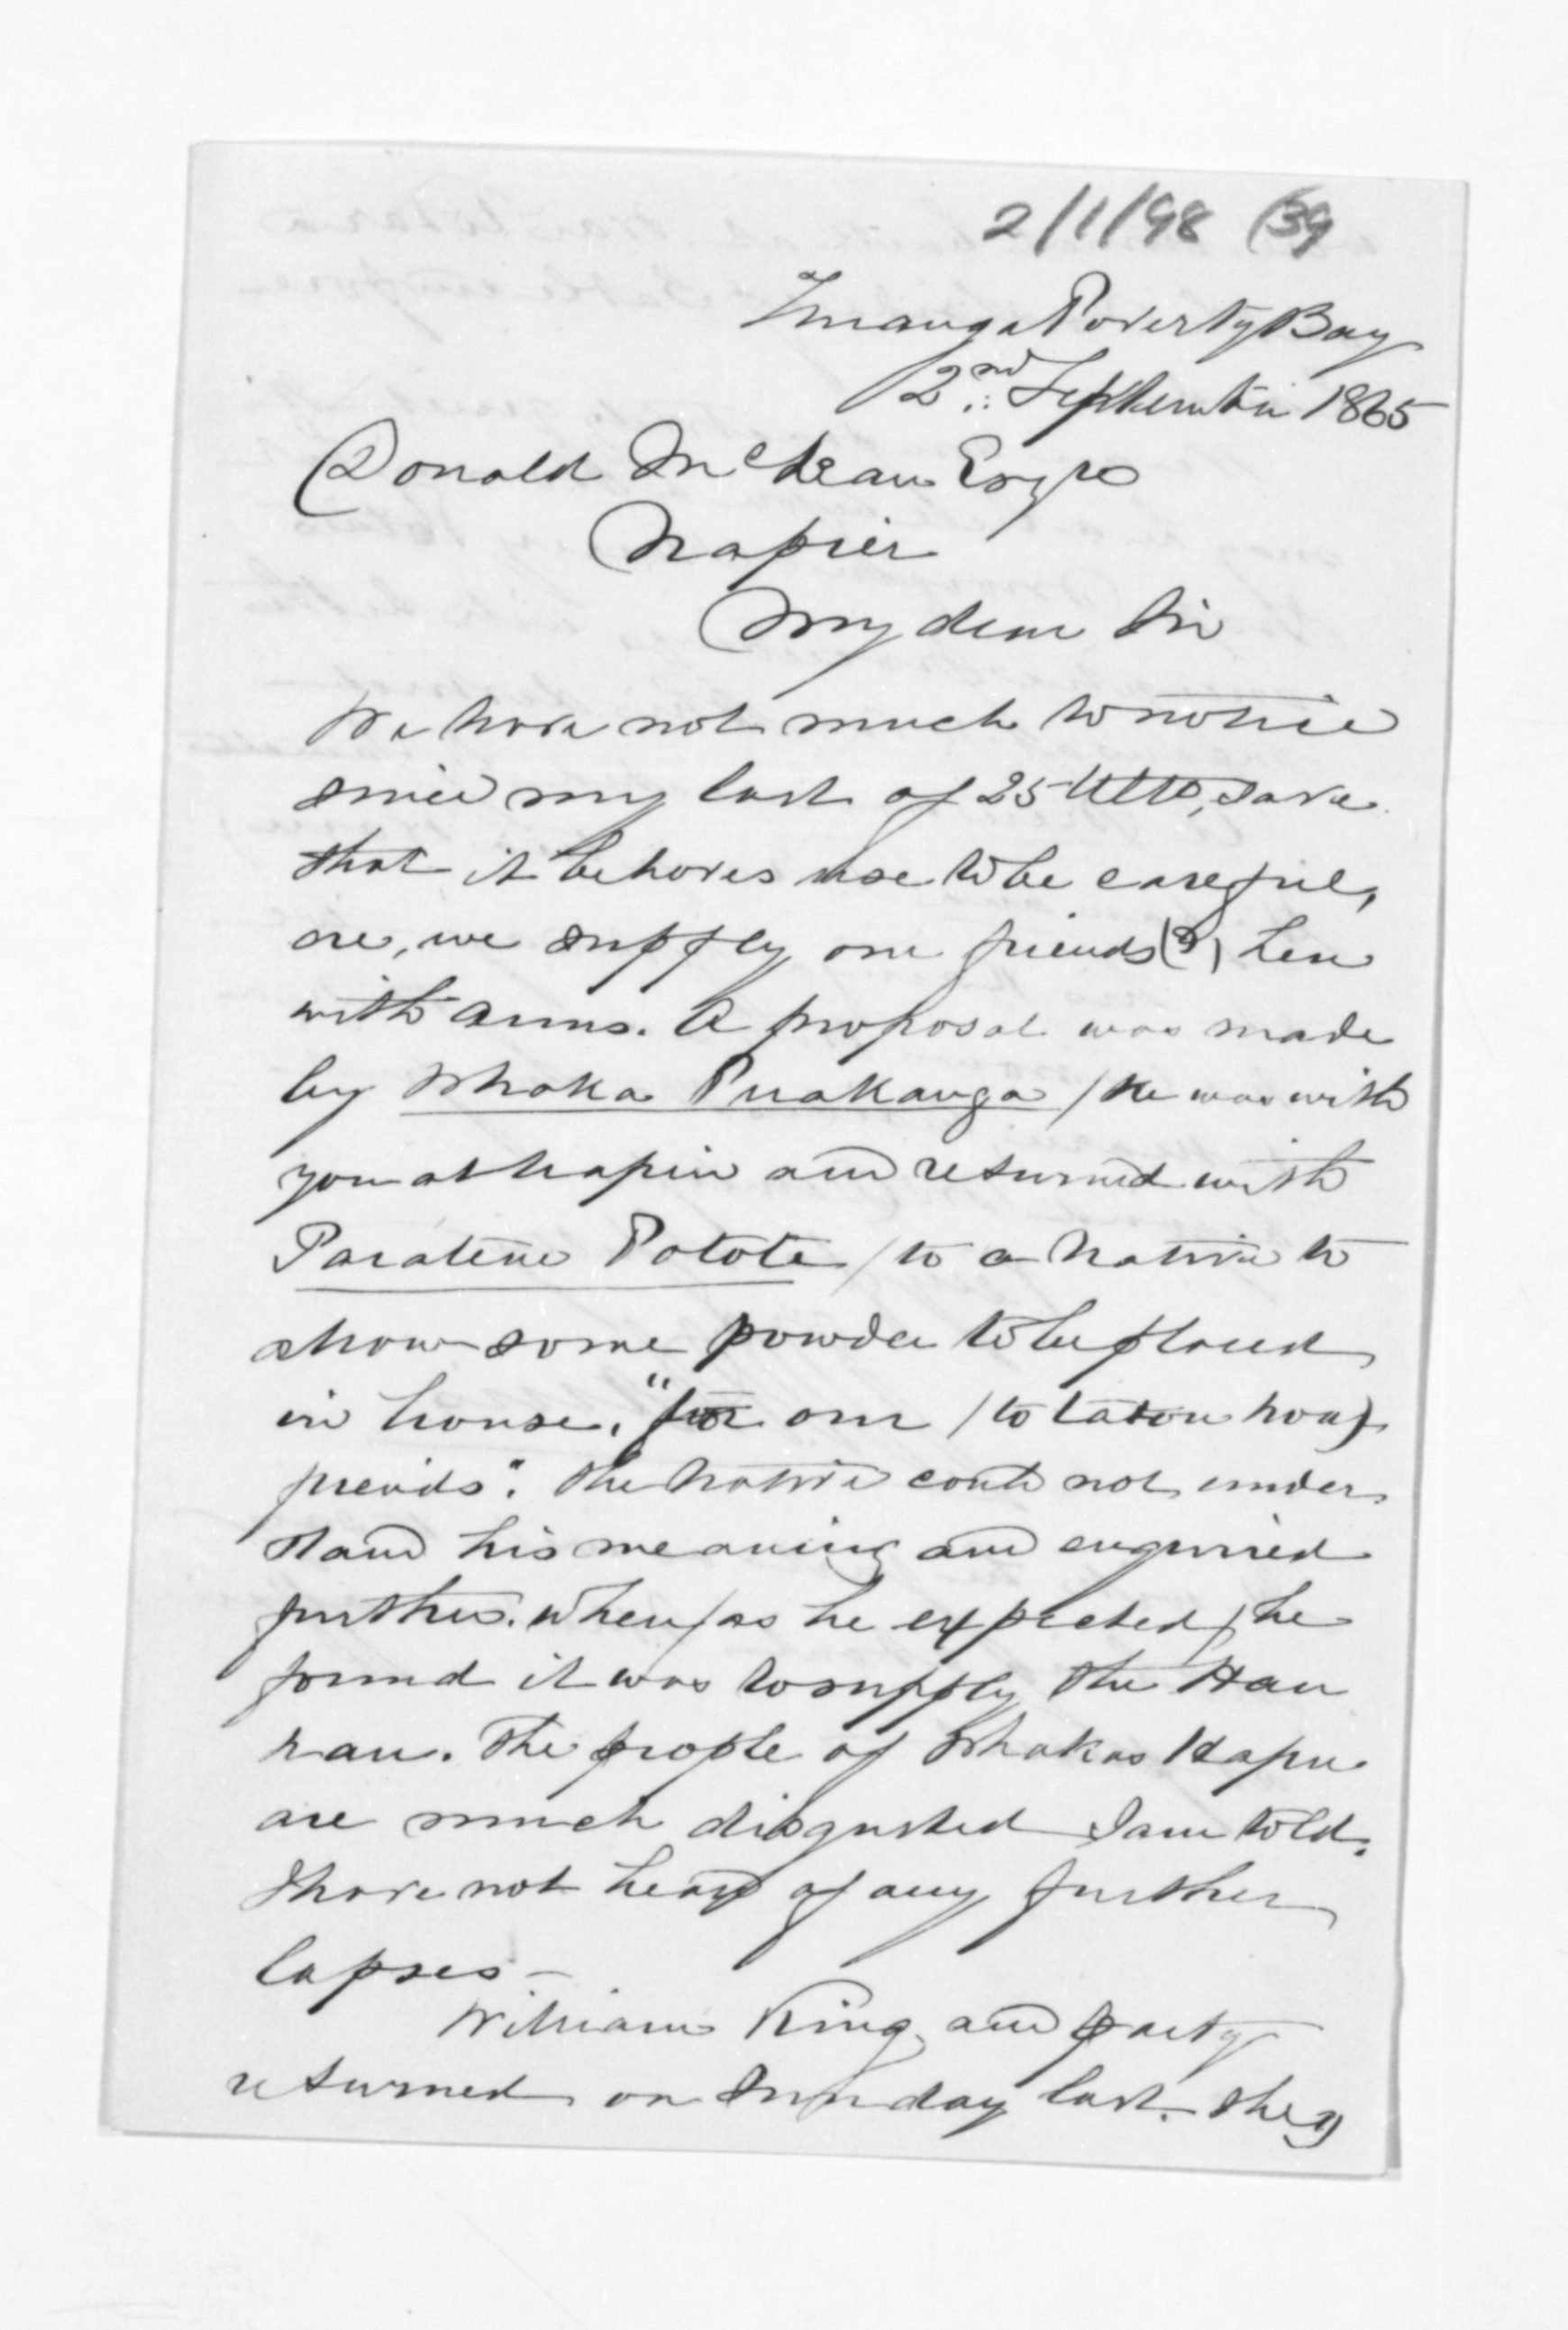 2/1/98 (39
Turanga Poverty Bay
2nd September 1865
Donald McLean Esqre
Napier
My dear Sir
We have not much to notice
since my last of 25 Ulto, save
that it behoves use to be careful,
ere, we supply our friends (?) here
with arms. A proposal was made
by Whaka Puakanga (he was with
you at Napier and returned with
Paratene Potote) to a Native to
show some powder to be placed
in house, "for our (to tatou hoa)
friends". The Native could not under
stand his meaning and enquired
further. When (as he expected) he
found it was to supply the Hau
hau. The people of Whakas Hapu
are much disgusted I am told.
I have not heard of any further
lapses -
William King and party
returned on Sunday last. They